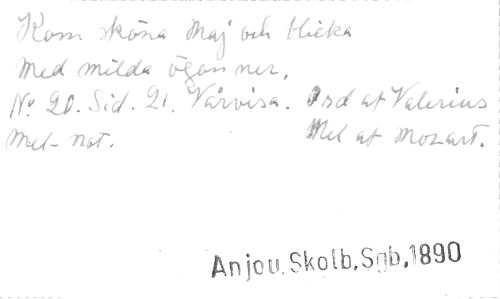 Kom sköna Maj och blicka
Med milda ögon ner.
No 20. Sid. 21. Vårvisa. Ord af Valerius
Mel. not. Mel af Mozart.
Anjou. Skolb, Sgb, 1890